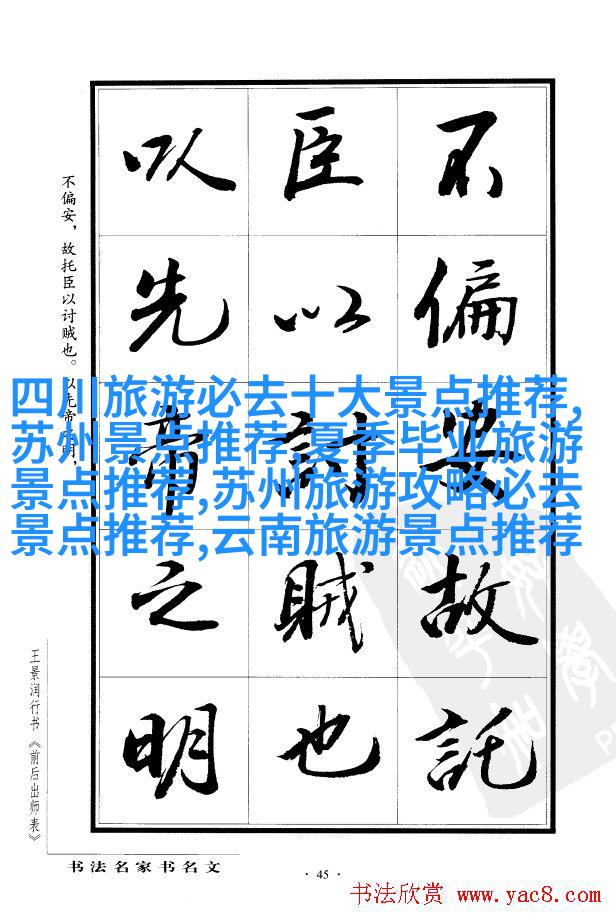 不偏安故託
臣以討賊也
以先帝之明
不偏安，故托臣以讨贼也。以先帝之明，
四川旅游必去十大景点推荐,
苏州景点推荐,夏季毕业旅游
景点推荐,苏州旅游攻略必去
景点推荐,云南旅游景点推荐
王景润行书《前后出师表》
书法名家书名文
· 45 ·
书法欣赏 www.yac8.com